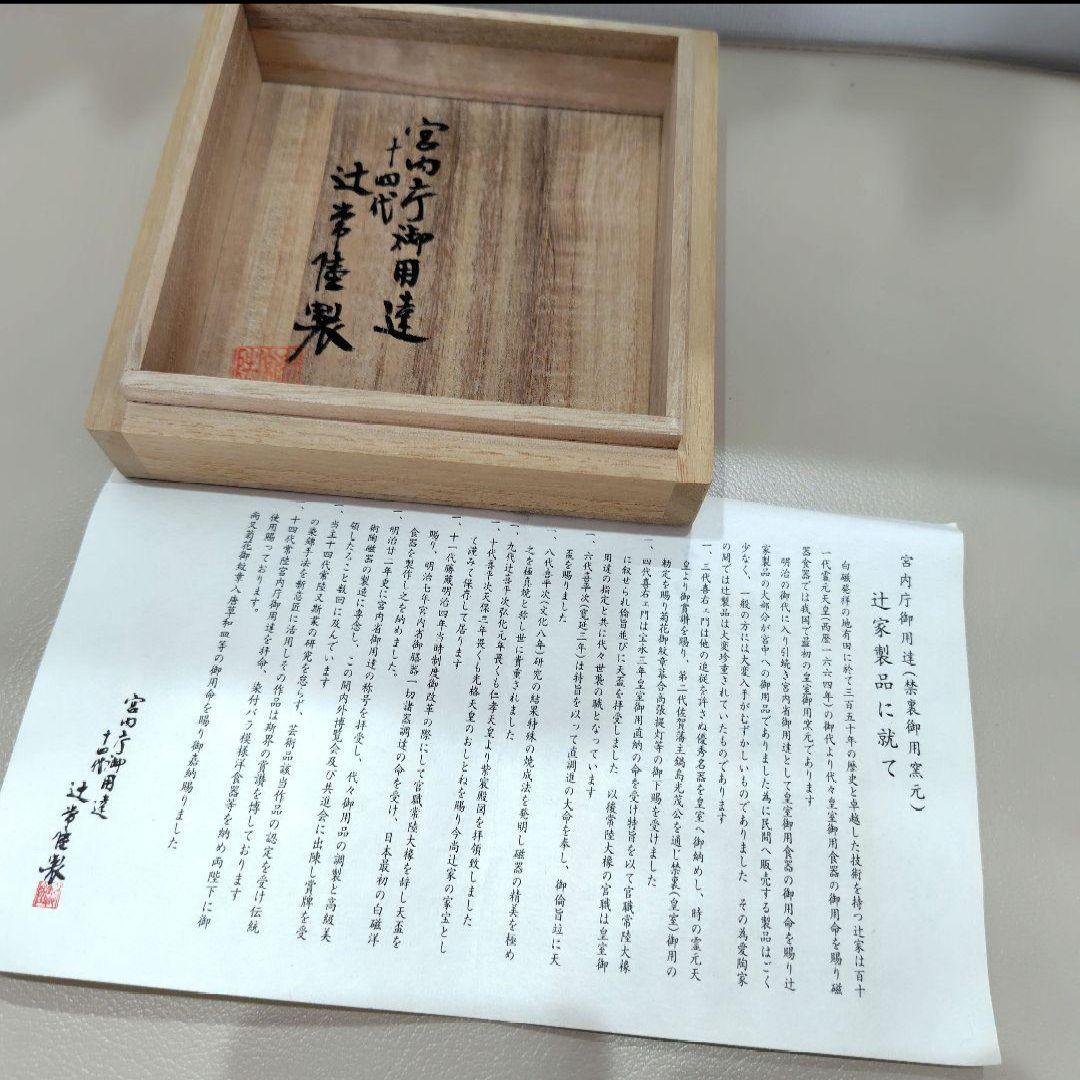 宮内庁御用達
十四代
辻常陸製
宮内庁御用達(禁裏御用窯元)
辻家製品に就て
白磁発祥の地有田に於て三百五十年の歴史と卓越した技術を持つ辻家は百十
一代霊元天皇(西暦一六六四年)の御代より代々皇室御用食器の御用命を賜り磁
器食器では我国で最初の皇室御用窯元であります
明治の御代に入り引続き宮内省御用達として皇室御用食器の御用命を賜り辻
家製品の大部分が宮中への御用品でありました為に民間へ販売する製品はごく
少なく、一般の方には大変入手がむずかしいものでありました その為愛陶家
の間では辻製品は大変珍重されていたものであります
一、三代喜右ェ門は他の追従を許さぬ優秀名器を皇室へ御納めし、時の霊元天
皇より御賞讃を賜り、第二代佐賀藩主鍋島光茂公を通じ禁裏(皇室)御用の
勅定を賜り菊花御紋章幕合高張提灯等の御下賜を受けました
一、四代喜右ェ門は宝永三年皇室御用直納の命を受け特旨を以て官職常陸大掾
に叙せられ倫旨並びに天盃を拝受しました 以後常陸大掾の官職は皇室御
用達の指定と共に代々世襲の職となっています
一、六代喜平次(寛延三年)は特旨を以って直調進の大命を奉し、御倫旨竝に天
盃を賜りました
一、八代喜平次(文化八年)研究の結果特殊の焼成法を発明し磁器の精美を極め
之を極真焼と称し世に貴重されました
一、九代辻喜平次弘化元年畏くも仁孝天皇より紫宸殿図を拝領致しました
一、十代喜平次天保二年畏くも光格天皇のおしとねを賜り今尚辻家の家宝とし
て謹みて保存して居ります
一、十一代勝蔵明治四年当時制度御改革の際にして官職常陸大掾を辞し天盃を
賜り、明治七年宮内省御膳器一切諸器調達の命を受け、日本最初の白磁洋
食器を製作し之を納めました。
一、明治廿一年更に宮内省御用達の称号を拝受し、代々御用品の調製と高級美
術陶磁器の製造に専念し、この間内外博覧会及び共進会に出陳し賞牌を受
領したること数回に及んでいます
一、当主十四代常陸又斯業の研究を怠らず、芸術品該当作品の認定を受け伝統
の染錦手法を新意匠に活用しその作品は斯界の賞讃を博しております
一、十四代常陸宮内庁御用達を拝命、染付バラ模様洋食器等を納め両陛下に御
使用賜っております。
尚又菊花御紋章入唐草和皿等の御用命を賜り御嘉納賜りました
宮内庁御用達
十四代
辻常陸製